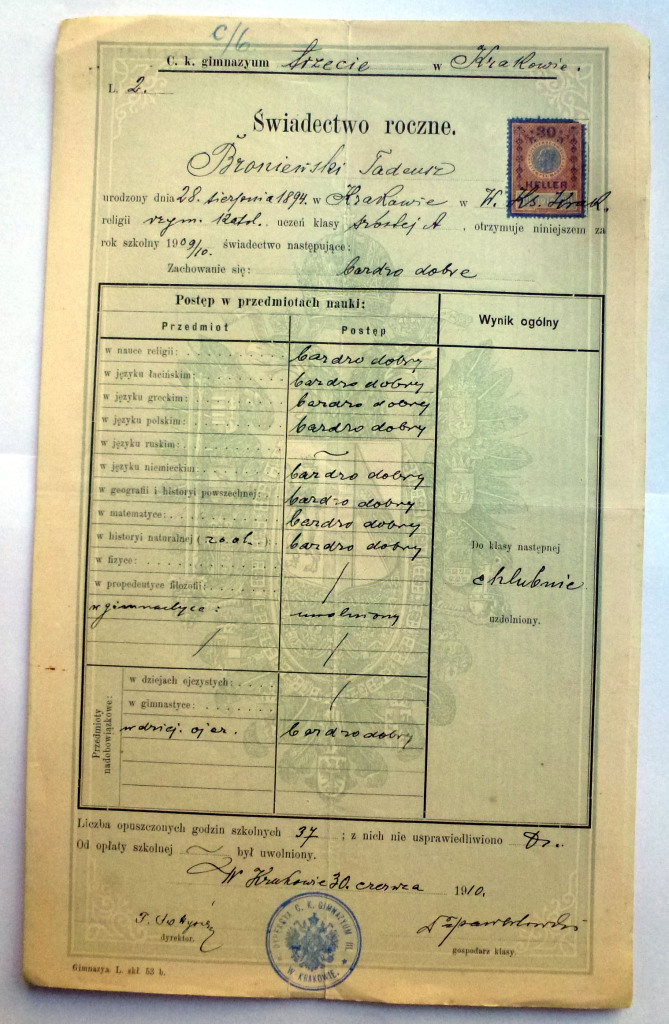 c/6
C. k. gimnazyum trzecie w Krakowie.
L. 2.
Świadectwo roczne.
30
HELLER
Broniewski Tadeusz
urodzony dnia 28. sierpnia 1894. w Krakowie w W. Ks. Krak.
religii rzym. katol. uczeń klasy szóstej A, otrzymuje niniejszem za
rok szkolny 1909/10. świadectwo następujące:
Zachowanie się: bardzo dobre
Postęp w przedmiotach nauki:
Wynik ogólny
Przedmiot Postęp
w nauce religii: bardzo dobry
w języku łacińskim: bardzo dobry
w języku greckim: bardzo dobry
w języku polskim: bardzo dobry
w języku ruskim: —
w języku niemieckim: bardzo dobry
w geografii i historyi powszechnej: bardzo dobry
w matematyce: bardzo dobry
w historyi naturalnej (zool.): bardzo dobry
Do klasy następnej
w fizyce: /
w propedeutyce filozofii:
chlubnie
w gimnastyce: uwolniony
uzdolniony.
/ /
Przedmioty nadobowiązkowe:
w dziejach ojczystych: /
w gimnastyce:
w dziej. ojcz. bardzo dobry
Liczba opuszczonych godzin szkolnych 37 ; z nich nie usprawiedliwiono
Od opłaty szkolnej był uwolniony.
W Krakowie 30. czerwca 1910.
dyrektor.
DYREKCJA C. K. GIMNAZYUM III. W KRAKOWIE.
gospodarz klasy.
Gimnazya L. skł. 53 b.